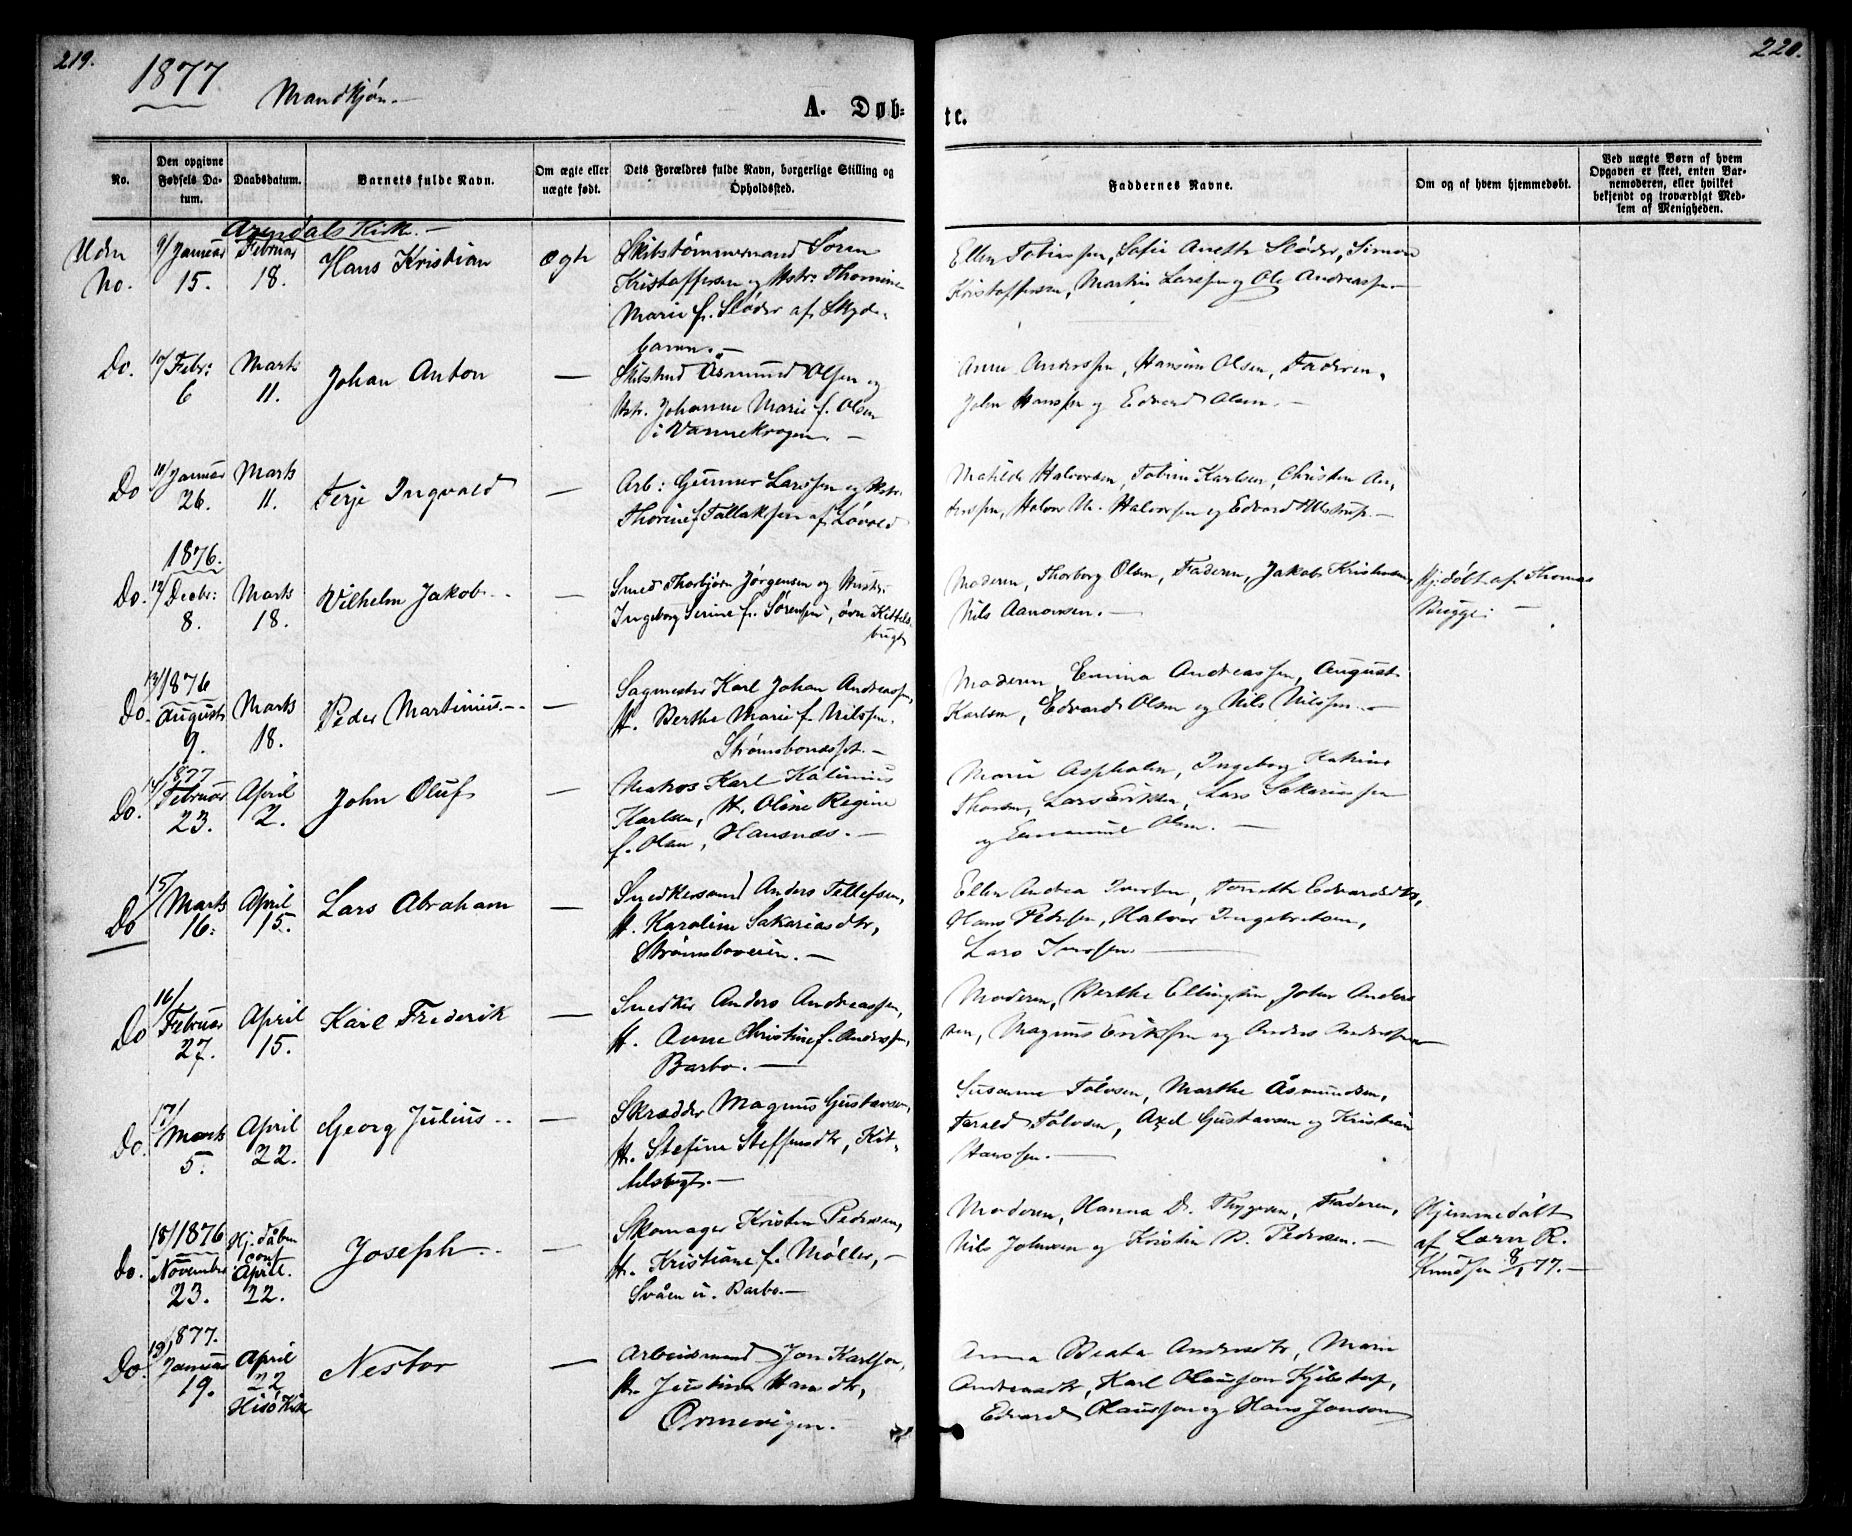 219.
220.
1877
Mandkjøn.
A. Døb-
te.
No.
Den opgivne Fødsels Da-tum.
Daabsdatum.
Barnets fulde Navn.
Om ægte eller uægte født.
Dets Forældres fulde Navn, borgerlige Stilling og Opholdssted.
Faddernes Navne.
Om og af hvem hjemmedøbt.
Ved uægte Børn af hvem Opgaven er skeet, enten Bar-nemoderen, eller hvilket bekjendt og troværdigt Med-lem af Menigheden.
Arendals Kirke.
Uden No.
9/ Januar 15.
Februar 18.
Hans Kristian
ægte
Skibstømmermand Søren
Kristoffersen og Hstr. Thomine
Marie f. Sløder af Skyde-
banen.
Ellen Tobiassen, Sofie Anette Sløder, Simon
Kristoffersen, Martin Larssen og Ole Andreassen
Do.
10/ Febr: 6
Marts 11.
Johan Anton
—
Åsmund Olsen og
Hstr. Johanne Marie f. Olsen
i Vannekrogen.
Anne Anderssen, Hansine Olsen, Faderen,
John Hanssen og Edvard Olsen.
Do
11/ Januar 26.
Marts 11.
Terje Ingvald
—
Arb: Gunner Larssen og Hstr.
Thorine f. Tallaksen af Løvold
Matilde Halvorsen, Tobine Karlsen, Christen An-
derssen, Halvor N. Halvorsen og Edvard Ulstrup.
1876.
Do.
12/ Decbr: 8.
Marts 18.
Vilhelm Jakob
—
Smed Thorbjørn Jørgensen og Hustr:
Ingeborg Serine f. Sørensen, øvr Kittels-
bugt
Moderen, Thorborg Olsen, Faderen, Jakob Kristensen,
Nils Aanonsen.
Hj. døbt af Thomas
Bugge.
13/ 1876
Do.
August 9.
Marts 18.
Peder Martinius
—
Sagmester Karl Johan Andreassen,
H. Berthe Marie f. Nilssen.
Strømsbonesset.
Moderen, Emma Andreassen, August
Karlsen, Edvard Olsen og Nils Nilssen.
14/ 1877
Do.
Februar 23.
April 2.
John Oluf
—
Matros Karl Kalinius
Karlsen, H. Oline Regine
f. Olsen, Hansnæs.
Marie Aspholm, Ingeborg Katrine
Thorsen, Lars Eriksen, Lars Sakariassen
og Emanuel Olsen.
Do
15/ Marts 16.
April 15.
Lars Abraham
—
Snedkersvend Anders Tellefsen,
H. Karoline Sakariasdtr,
Strømsboveien.
Ellen Andrea Iverssen, Tomette Edvardsdtr,
Hans Pedersen, Halvor Ingebretsen,
Lars Iverssen.
Do
16/ Februar 27.
April 15.
Karl Frederik
—
Snedker Anders Andreassen,
H. Anne Christine f. Anderssen,
Barbo.
Moderen, Berthe Ellingsen, John Anders
sen, Magnus Eriksen og Anders Anderssen
Do.
17/ Marts 5.
April 22.
Georg Julius
—
Skrædder Magnus Gustavsen,
H. Stefine Steffensdtr, Kit-
telsbugt.
Susanne Tolvsen, Marthe Åsmundsen,
Terald Tolvsen, Axel Gustavsen og Kristian
Hanssen.
18/ 1876
Do.
November 23.
Hj. dåben conf April. 22.
Joseph
—
Skomager Kristen Pedersen,
H. Kristiane f. Møller,
Svåen i Barbo.
Moderen, Hanna D. Thygesen, Faderen,
Nils Johnsen og Kristen B. Pedersen.
Hjemmedøbt
af R.
Knudsen 8/1 77.
19/ 1877.
Do.
Januar 19.
April 22 Hisø Kirke
Nestor
—
Arbeidsmand Jon Karlsson,
H. Justine Hansdtr,
Ormevigen.
Anna Beata Andersdtr, Marie
Andreasdtr, Karl Olausson Kjilstup,
Edvard Olausson og Hans Jonson